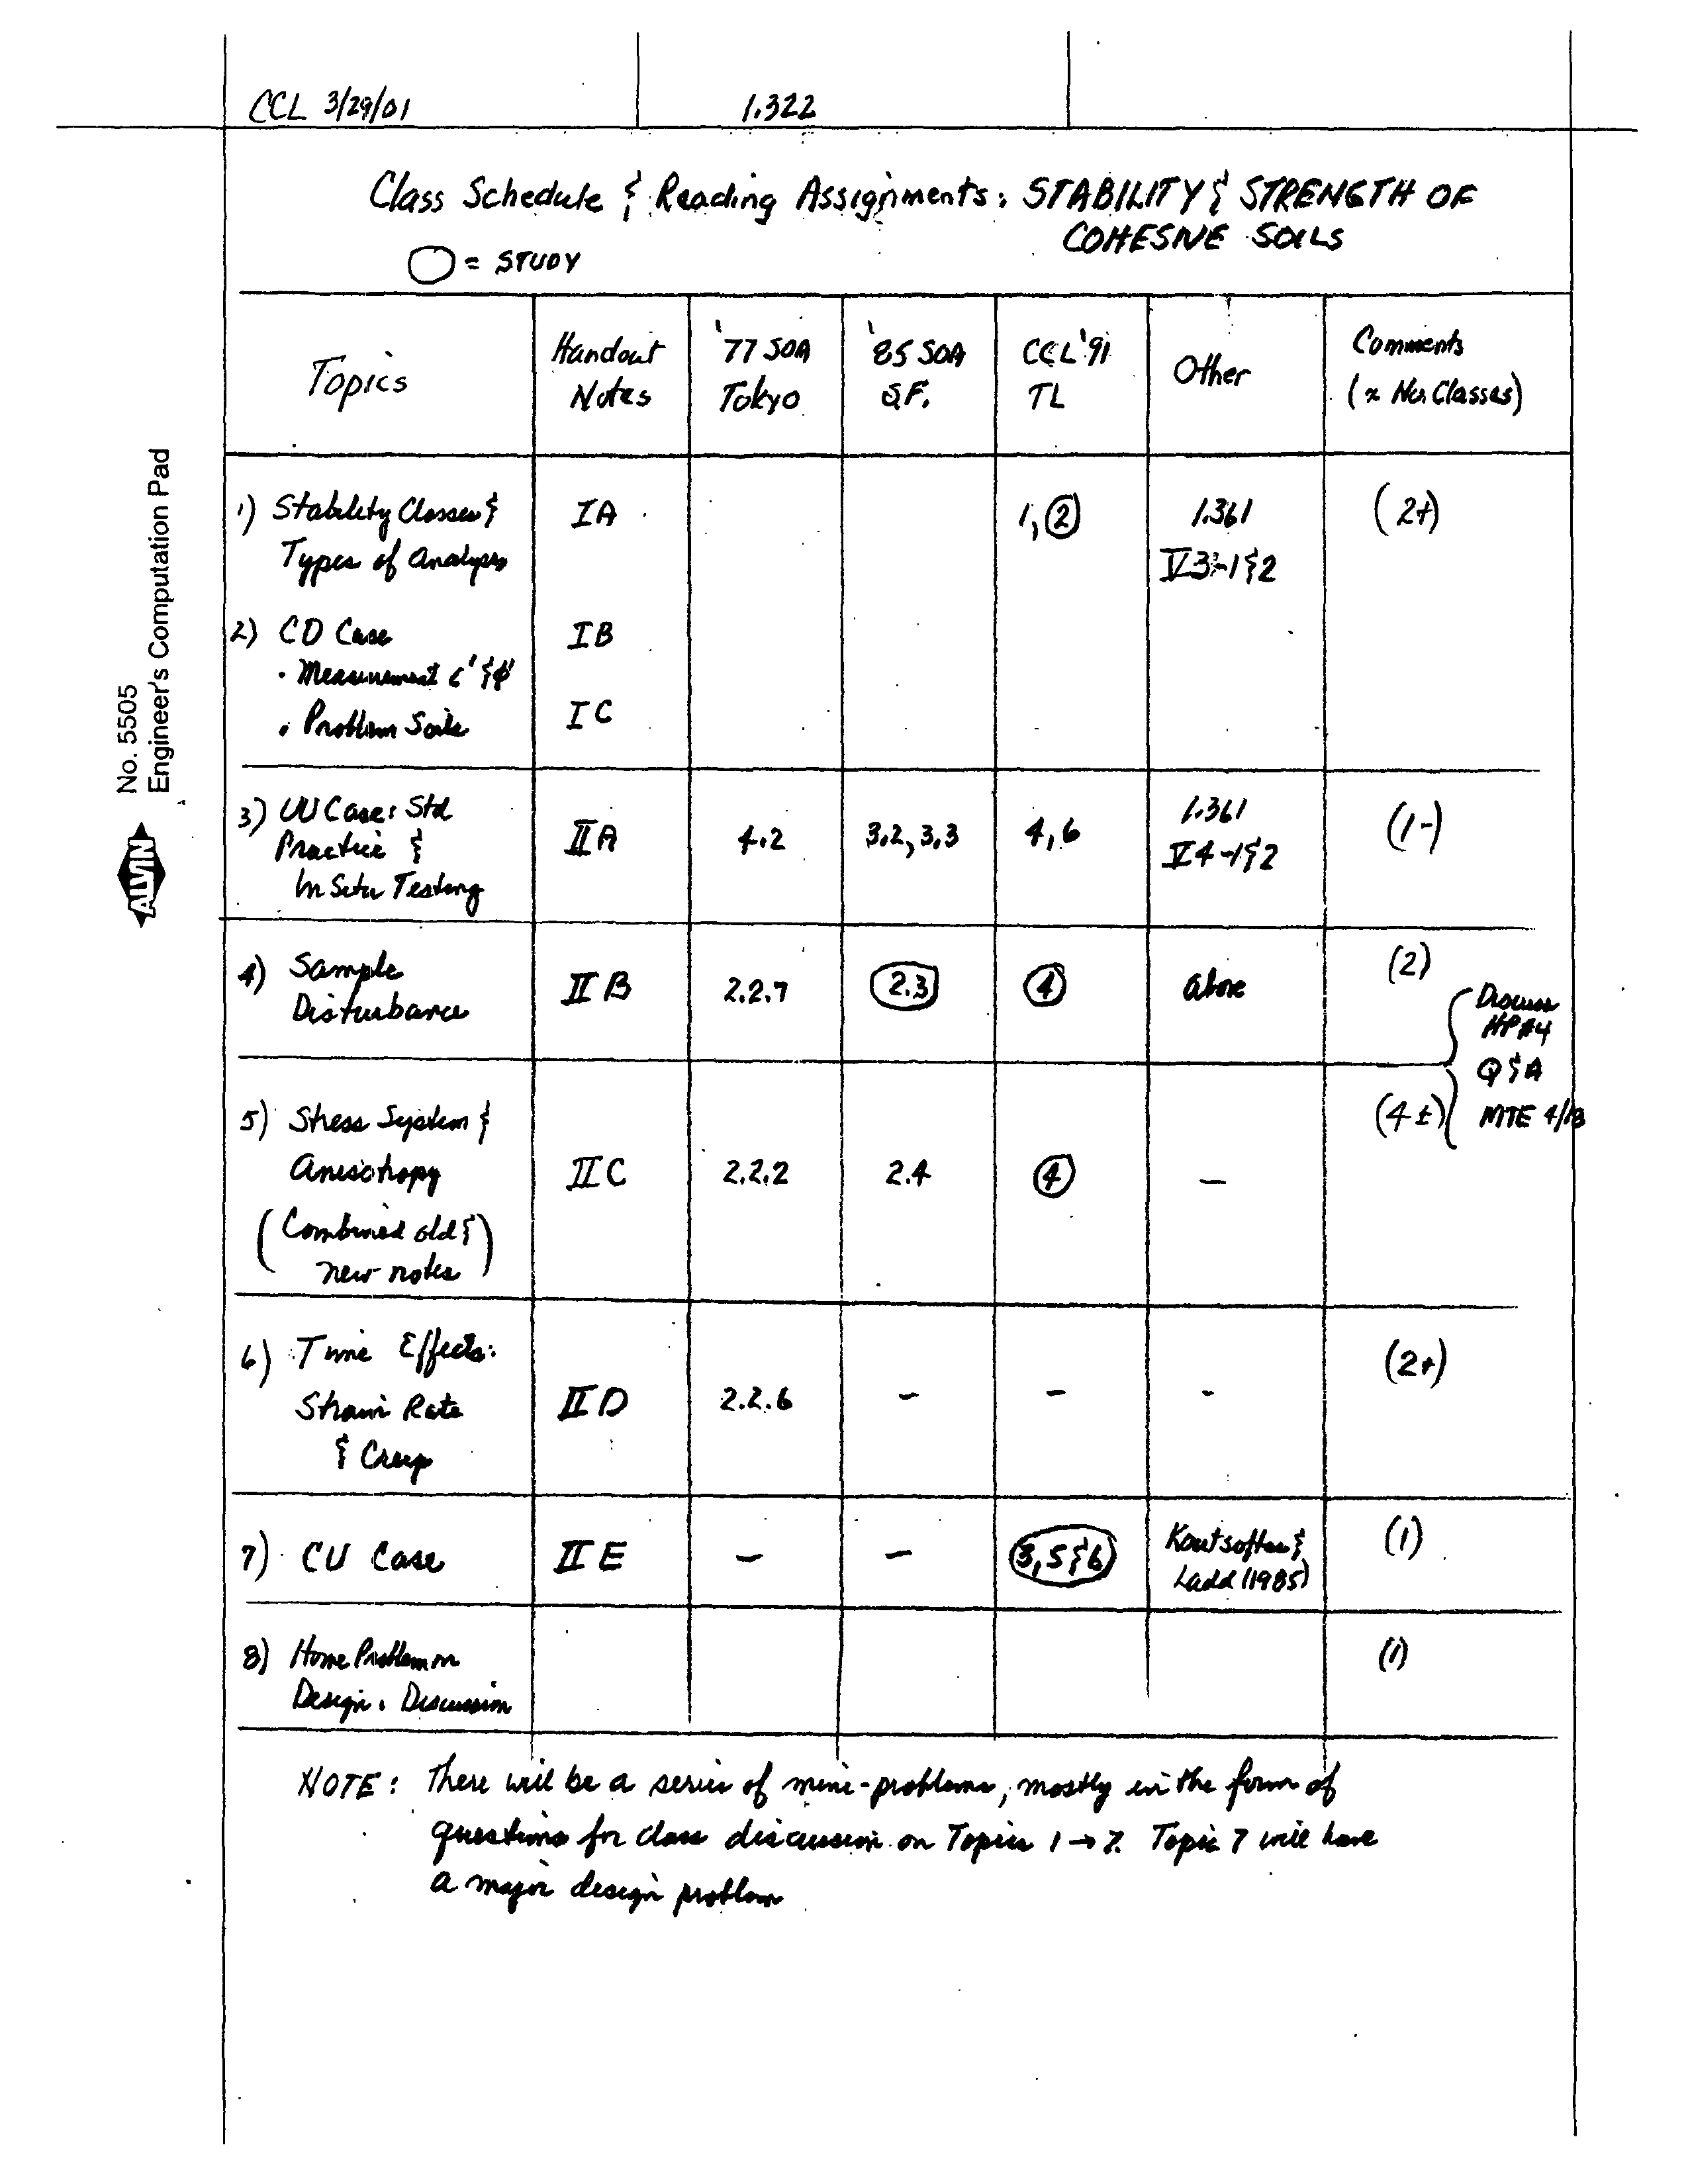 CCL 3/29/01
1.322
Class Schedule & Reading Assignments: STABILITY & STRENGTH OF
COHESIVE SOILS
= STUDY
Topics
Handout
Notes
'77 SOA
Tokyo
'85 SOA
S.F.
CCL '91
TL
Other
Comments
(≈ No. Classes)
1) Stability Classes &
Types of Analyses
IA
1, 2
1.361
V3-1&2
(2+)
2) CD Case
• Measurement c' & φ'
• Problem Soils
IB
IC
3) UU Case: Std
Practice &
In Situ Testing
IIA
4.2
3.2, 3.3
4, 6
1.361
V4-1&2
(1-)
4) Sample
Disturbance
IIB
2.2.7
2.3
4
above
(2)
Discuss
HP#4
Q&A
MTE 4/18
5) Stress System &
Anisotropy
(Combined old &
new notes)
IIC
2.2.2
2.4
4
-
(4±)
6) Time Effects:
Strain Rate
& Creep
IID
2.2.6
-
-
-
(2+)
7) CU Case
IIE
-
-
3, 5 & 6
Koutsoftas &
Ladd (1985)
(1)
8) Home Problem on
Design: Discussion
(1)
NOTE: There will be a series of mini-problems, mostly in the form of
questions for class discussion on Topics 1 → 7. Topic 7 will have
a major design problem
No. 5505
Engineer's Computation Pad
ALVIN